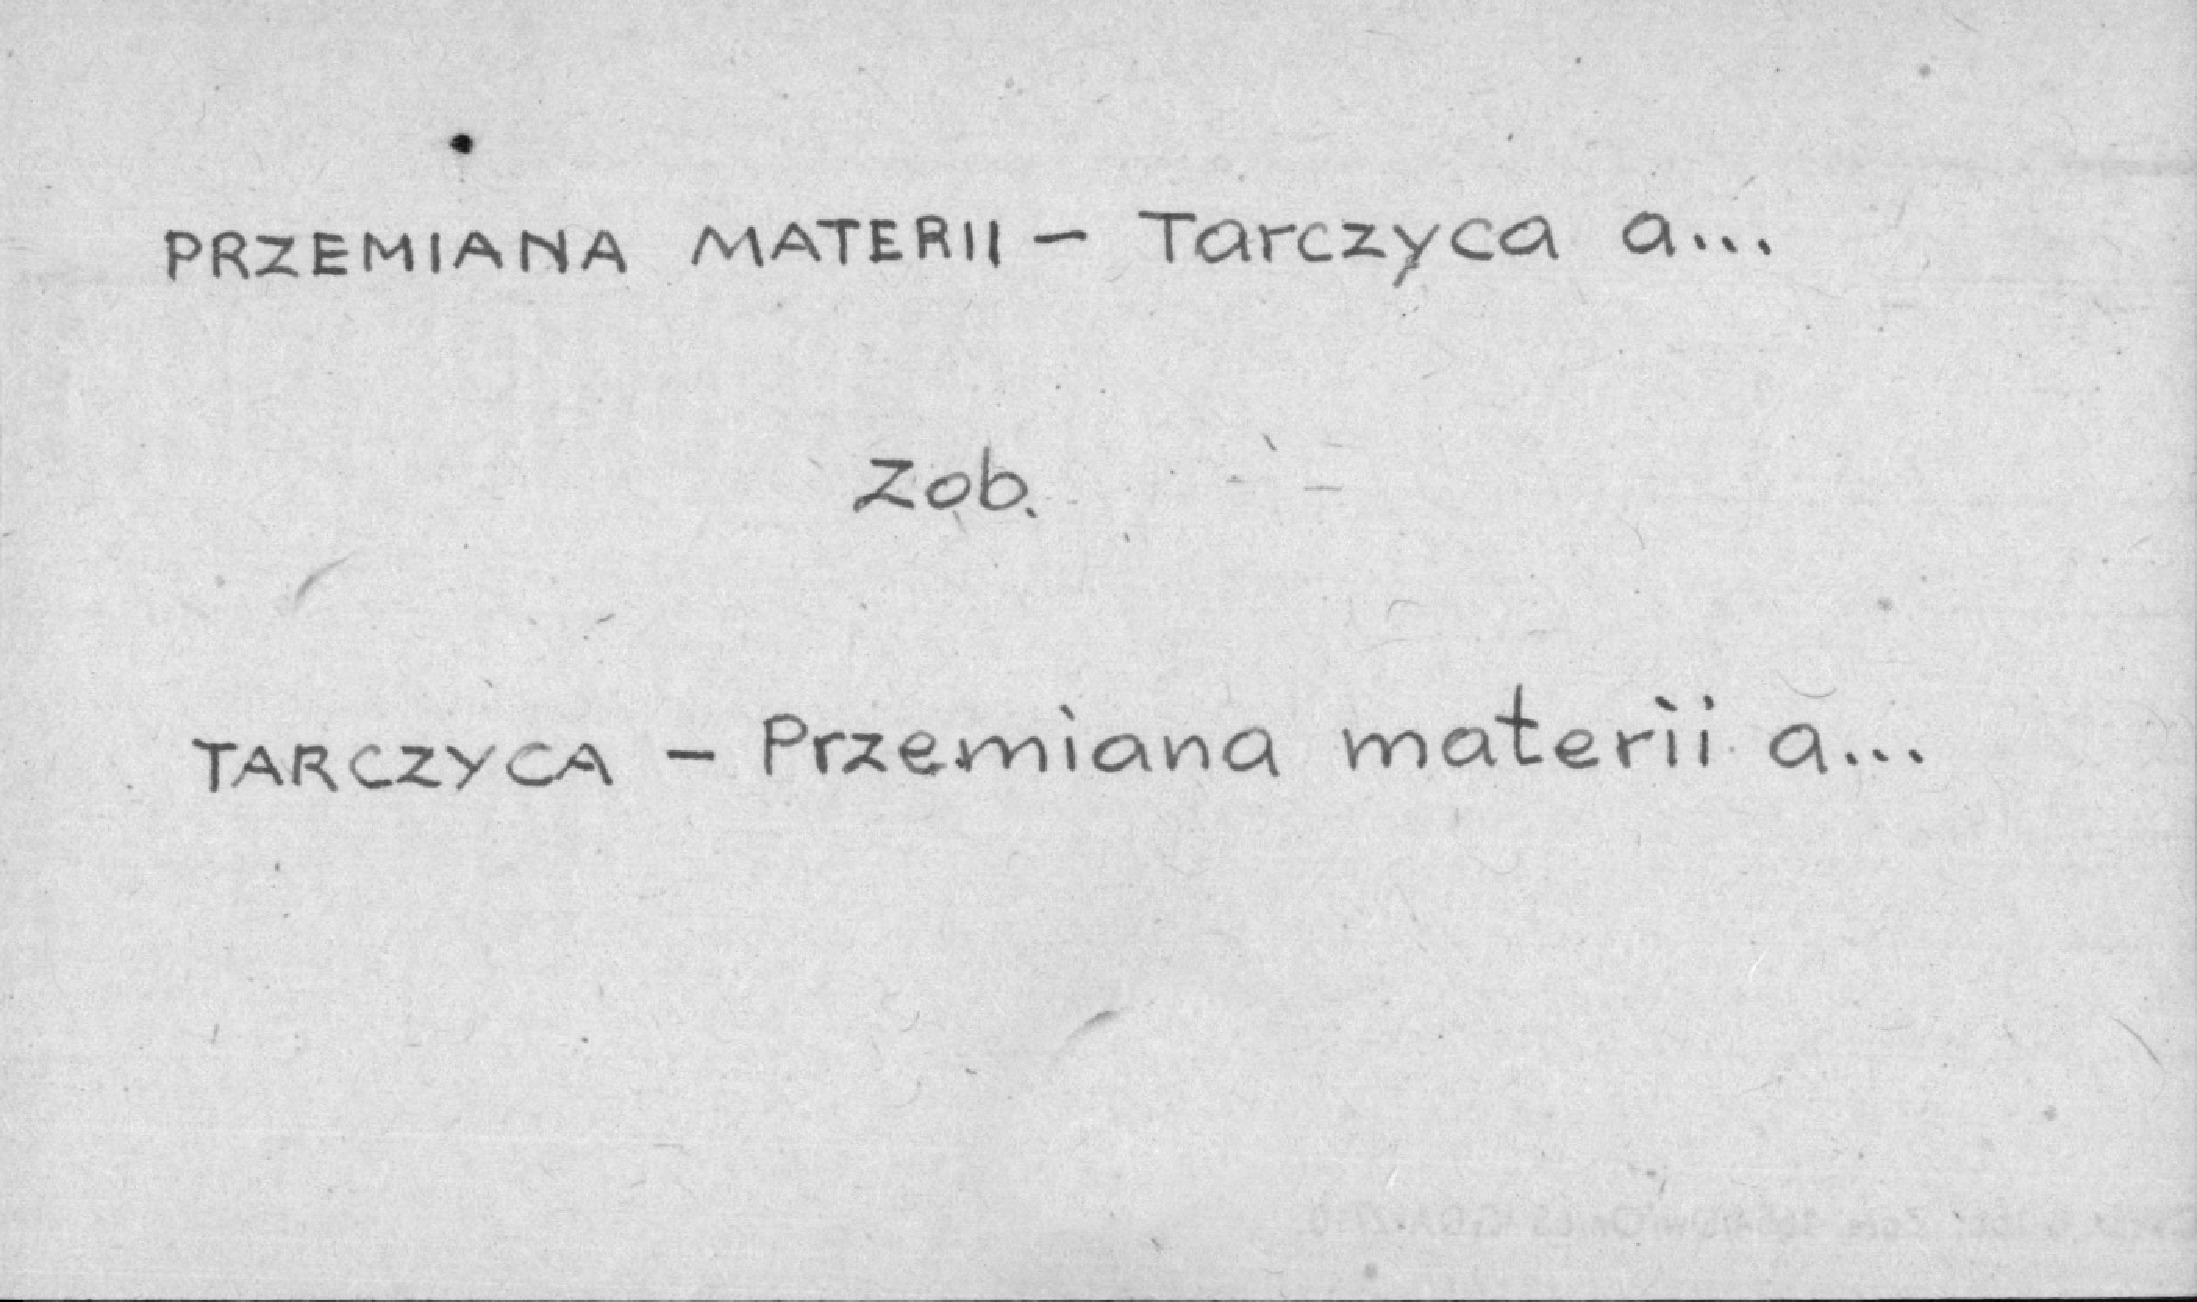 PRZEMIANA MATERII – Tarczyca a...
Zob.
TARCZYCA – Przemiana materii a...